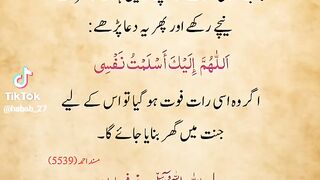 نیچے رکھے اور پھر یہ دعا پڑھے:
اَللّٰهُمَّ إِلَيْكَ أَسْلَمْتُ نَفْسِى
اگر وہ اسی رات فوت ہو گیا تو اس کے لیے
جنت میں گھر بنایا جائے گا۔
مسند احمد (5539)
TikTok